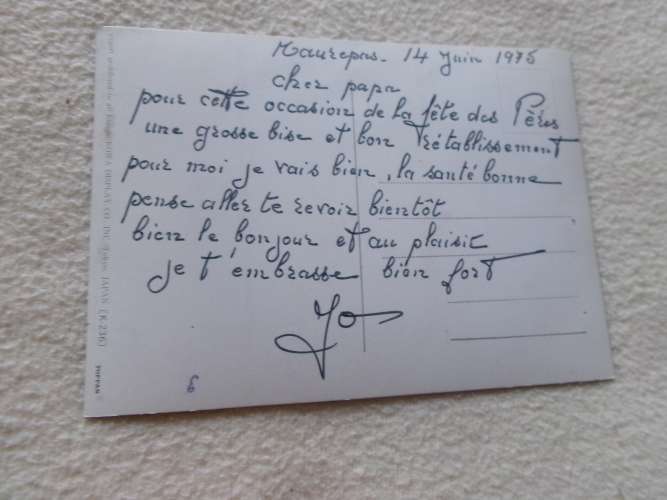 Maurepas. 14 Juin 1975
cher papa
pour cette occasion de la fête des Pères
une grosse bise et bon rétablissement
pour moi je vais bien, la santé bonne
pense aller te revoir bientôt
bien le bonjour et au plaisir
je t'embrasse bien fort
Jo
6
TOPPAN
JAPAN